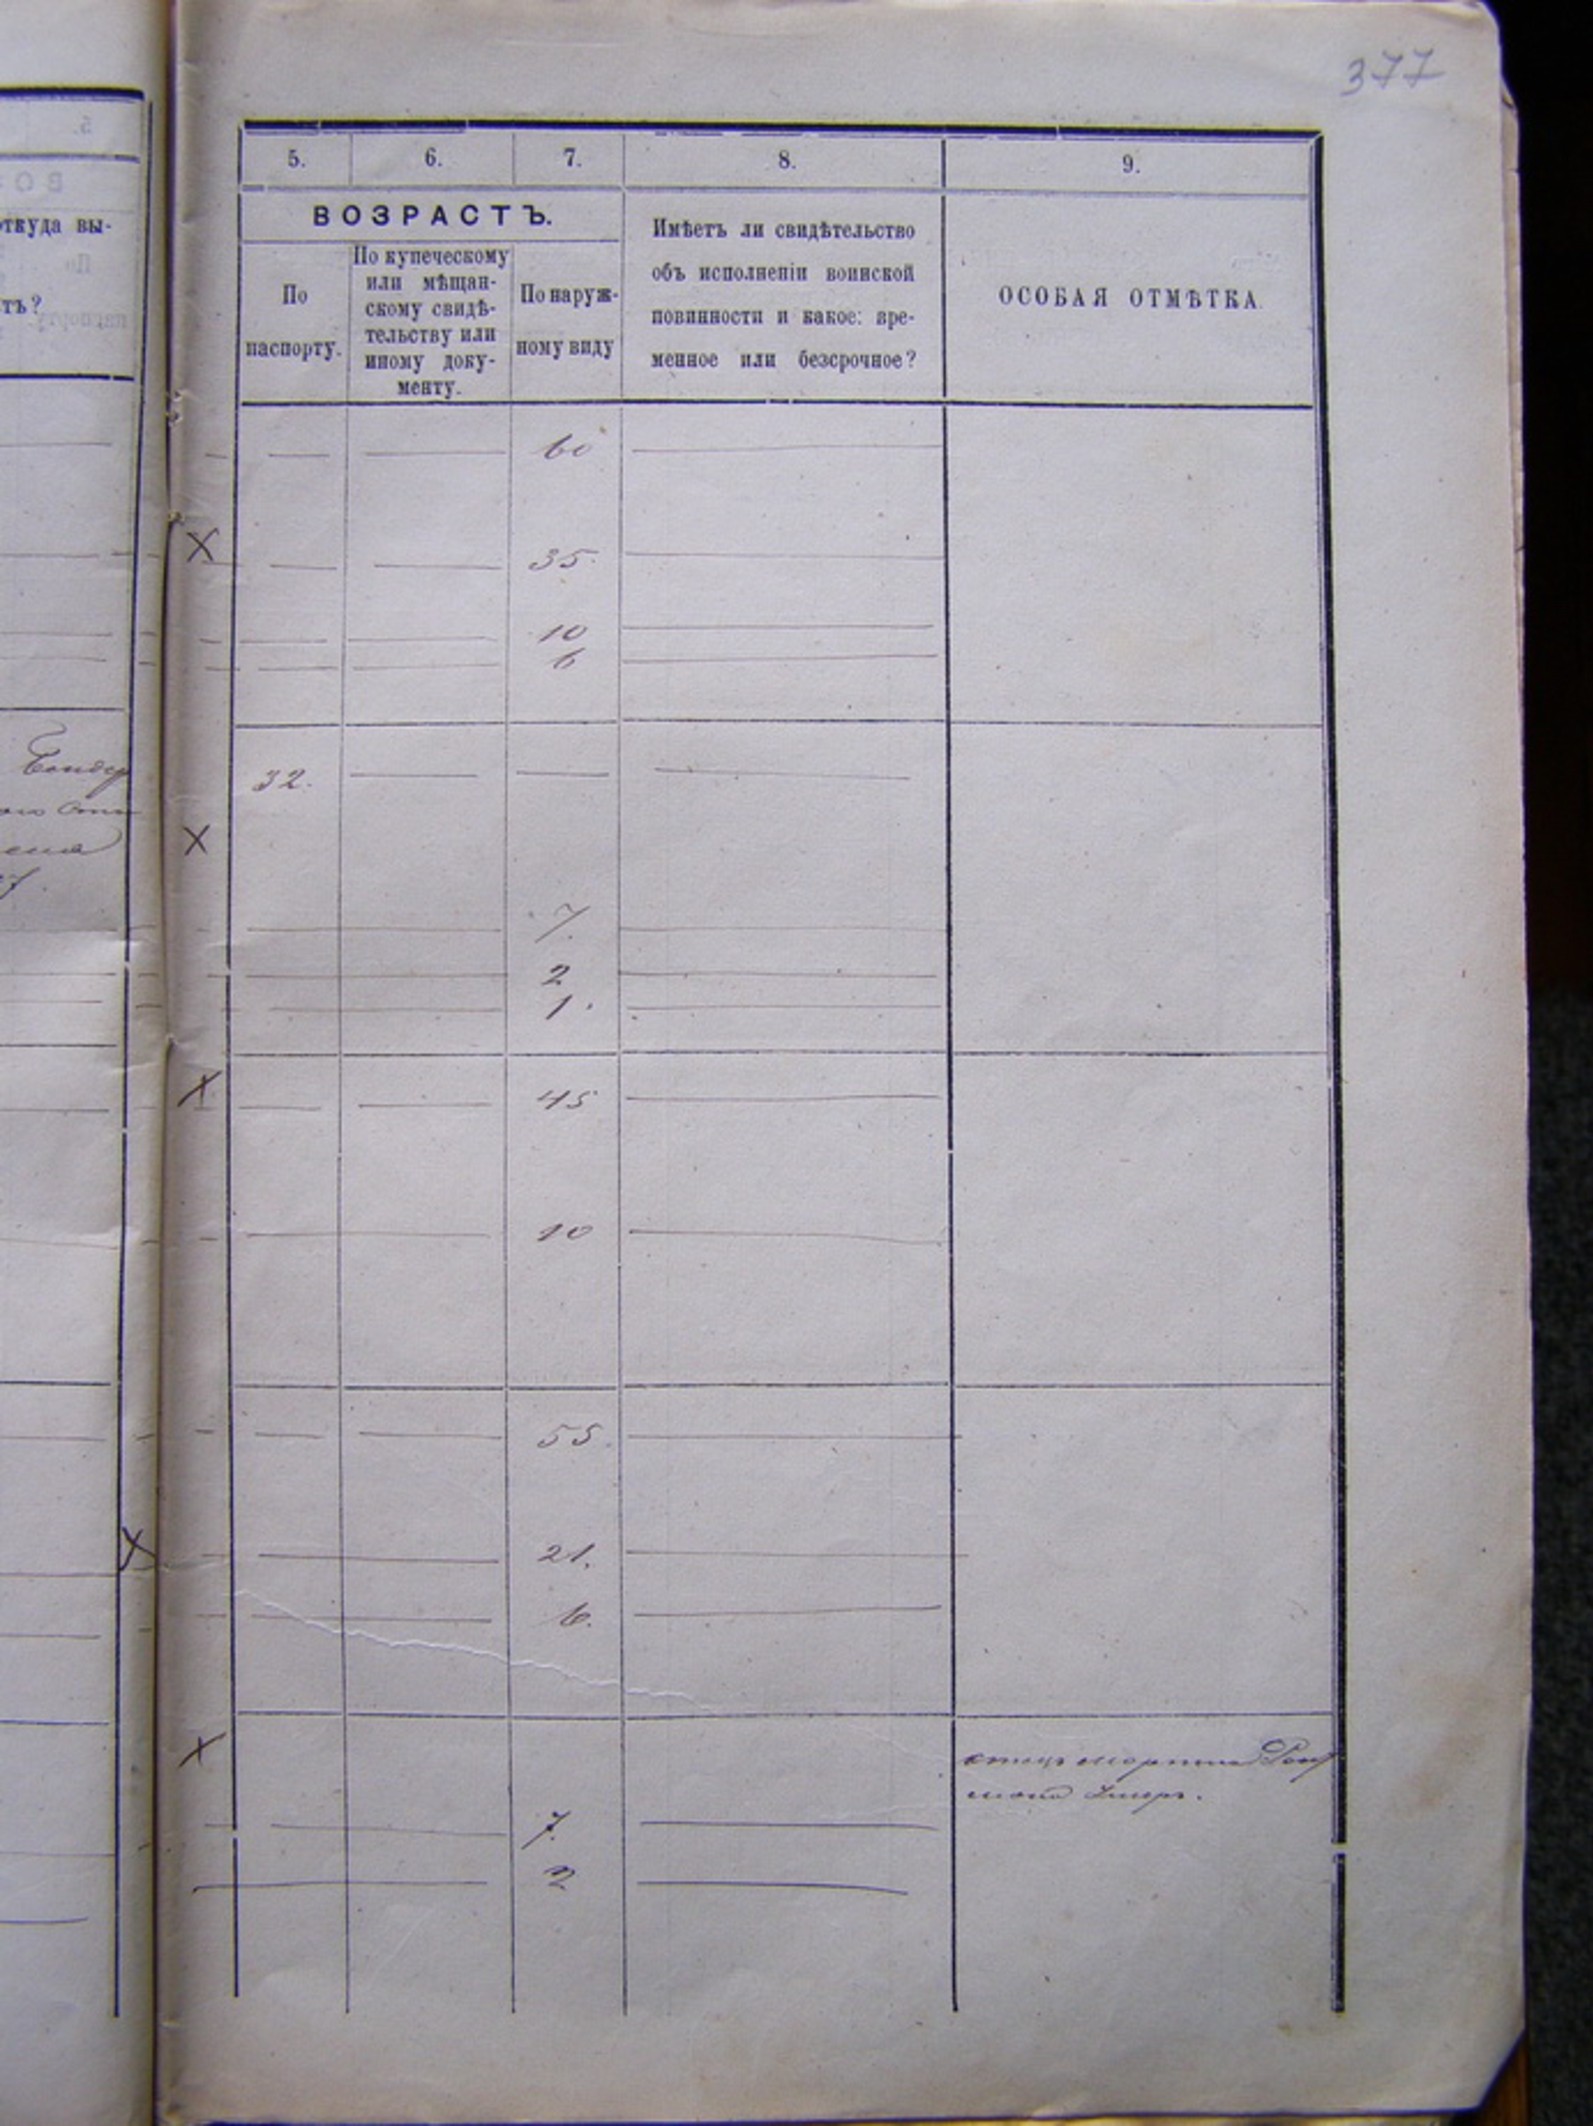 377
5.
откуда вы-
ть?
5. 6. 7. 8. 9.
ВОЗРАСТЪ.
По
паспорту.
По купеческому
или мѣщан-
скому свидѣ-
тельству или
иному доку-
менту.
По наруж-
ному виду
Имѣетъ ли свидѣтельство
объ исполненіи воинской
повинности и какое: вре-
менное или безсрочное?
ОСОБАЯ ОТМѢТКА.
60
35.
10
6
32.
7.
2
1.
45
10
55.
21.
6.
отецъ
умеръ.
7.
2